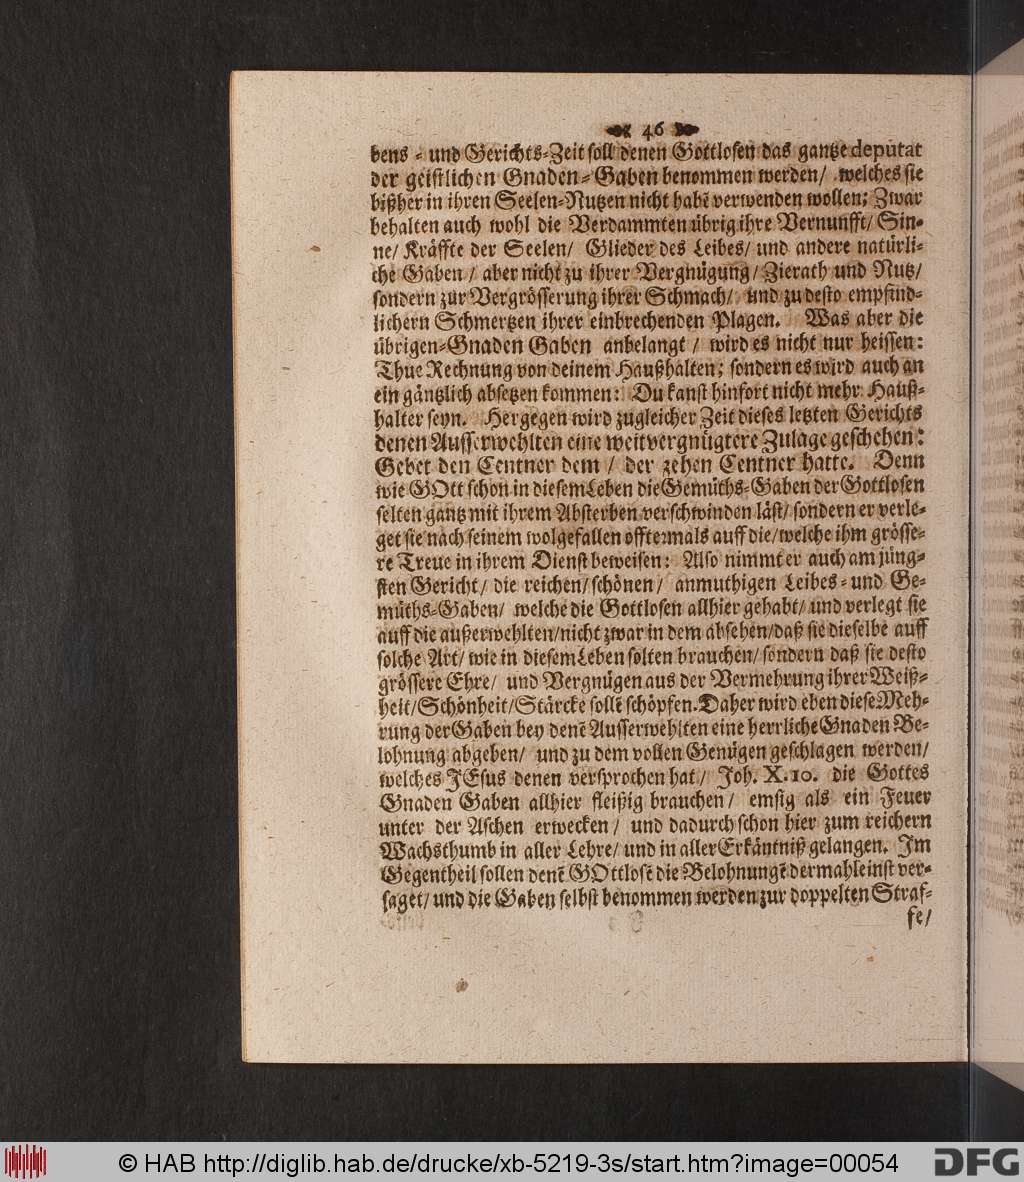 46
bens - und Gerichts-Zeit soll denen Gottlosen das gantze deputat
der geistlichen Gnaden-Gaben benommen werden/ welches sie
bißher in ihren Seelen-Nutzen nicht habẽ verwenden wollen; Zwar
behalten auch wohl die Verdammten übrig ihre Vernunfft/ Sin-
ne/ Kräffte der Seelen/ Glieder des Leibes/ und andere natürli-
che Gaben/ aber nicht zu ihrer Vergnügung/ Zierath und Nutz/
sondern zur Vergrösserung ihrer Schmach/ und zu desto empfind-
lichern Schmertzen ihrer einbrechenden Plagen. Was aber die
übrigen-Gnaden Gaben anbelangt/ wird es nicht nur heissen:
Thue Rechnung von deinem Haußhalten; sondern es wird auch an
ein gäntzlich absetzen kommen: Du kanst hinfort nicht mehr Hauß-
halter seyn. Hergegen wird zugleicher Zeit dieses letzten Gerichts
denen Ausserwehlten eine weitvergnügtere Zulage geschehen:
Gebet den Centner dem/ der zehen Centner hatte. Denn
wie GOtt schon in diesem Leben die Gemüths-Gaben der Gottlosen
selten gantz mit ihrem Absterben verschwinden läst/ sondern er verle-
get sie nach seinem wolgefallen offtermals auff die/ welche ihm grösse-
re Treue in ihrem Dienst beweisen: Also nimmt er auch am jüng-
sten Gericht/ die reichen/ schönen/ anmuthigen Leibes- und Ge-
müths-Gaben/ welche die Gottlosen allhier gehabt/ und verlegt sie
auff die außerwehlten/ nicht zwar in dem absehen/ daß sie dieselbe auff
solche Art/ wie in diesem Leben solten brauchen/ sondern daß sie desto
grössere Ehre/ und Vergnügen aus der Vermehrung ihrer Weiß-
heit/ Schönheit/ Stärcke sollẽ schöpfen. Daher wird eben diese Meh-
rung der Gaben bey denẽ Ausserwehlten eine herrliche Gnaden Be-
lohnung abgeben/ und zu dem vollen Genügen geschlagen werden/
welches JEsus denen versprochen hat/ Joh. X. 10. die Gottes
Gnaden Gaben allhier fleißig brauchen/ emsig als ein Feuer
unter der Aschen erwecken/ und dadurch schon hier zum reichern
Wachsthumb in aller Lehre/ und in aller Erkäntniß gelangen. Im
Gegentheil sollen denẽ GOttlosẽ die Belohnungẽ dermahleinst ver-
saget/ und die Gaben selbst benommen werden zur doppelten Straf-
fe/
© HAB http://diglib.hab.de/drucke/xb-5219-3s/start.htm?image=00054
DFG